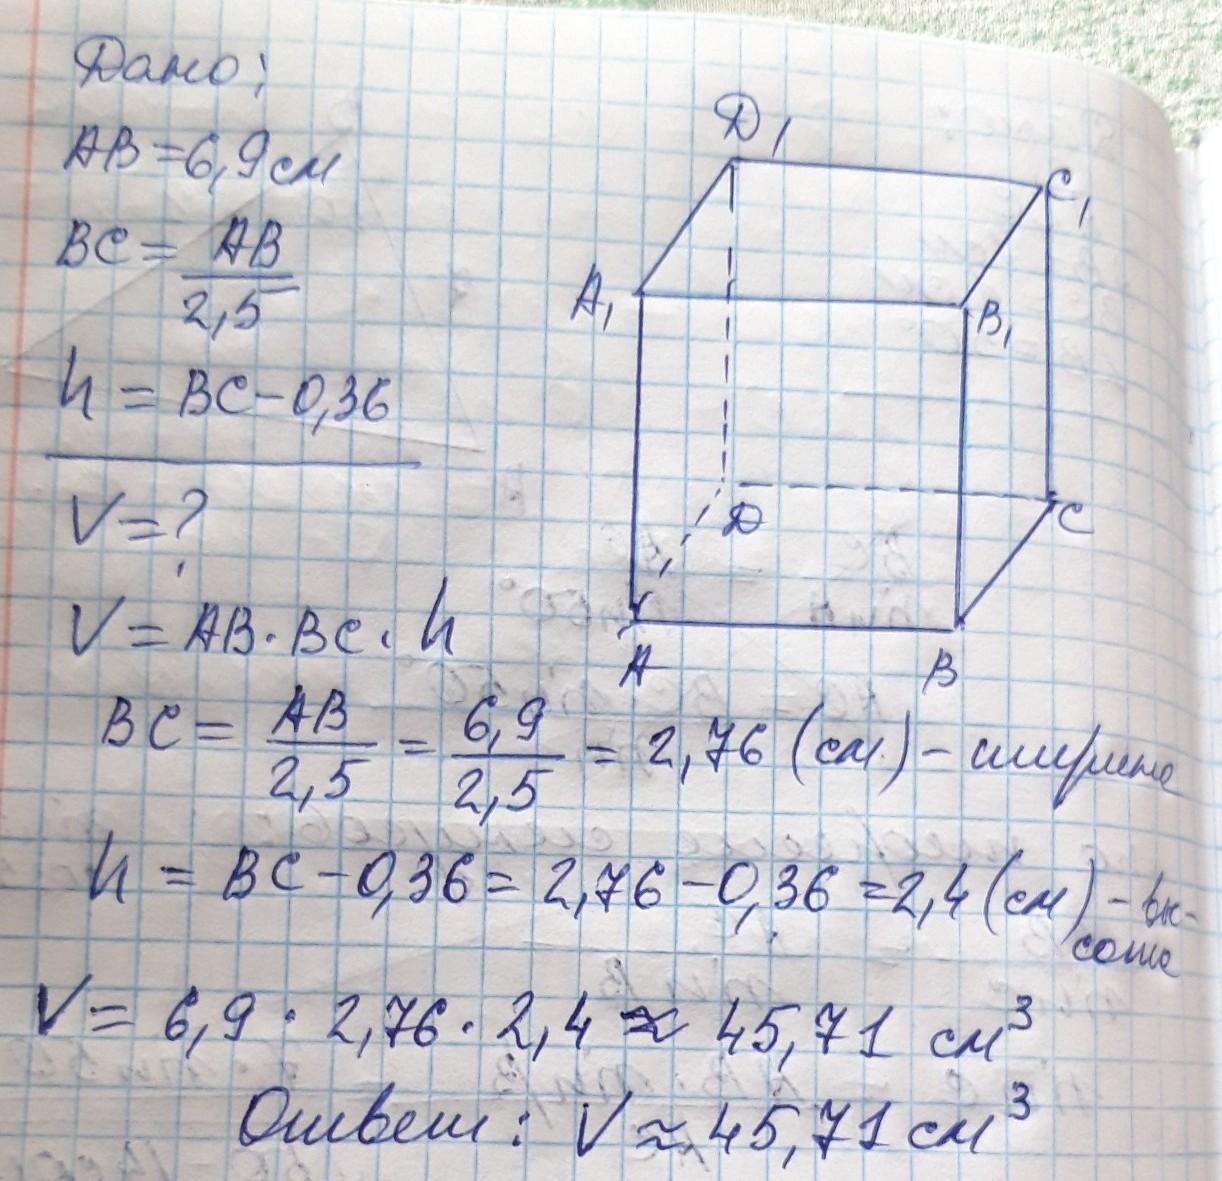 Дано:
AB = 6,9 см
BC = AB / 2,5
h = BC - 0,36
V = ?
V = AB · BC · h
BC = AB / 2,5 = 6,9 / 2,5 = 2,76 (см) - ширина
h = BC - 0,36 = 2,76 - 0,36 = 2,4 (см) - вы-
сота
V = 6,9 · 2,76 · 2,4 ≈ 45,71 см³
Ответ: V ≈ 45,71 см³
D₁
C₁
A₁
B₁
D
C
A
B